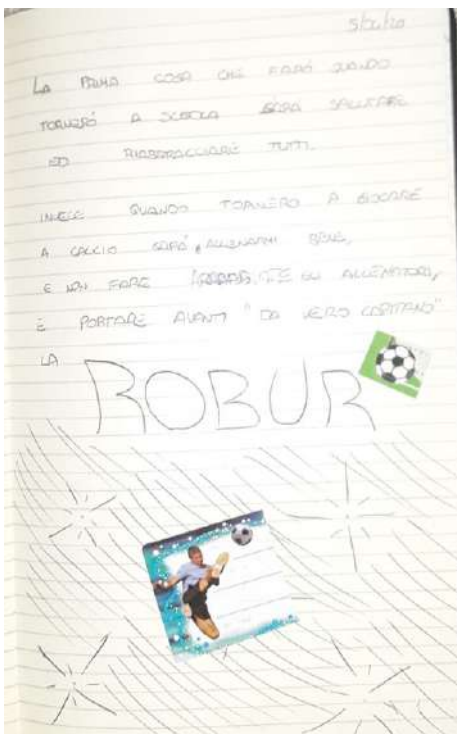 LA PRIMA COSA CHE FARÓ QUANDO
TORNERÓ A SCUOLA SARÁ SALUTARE
ED RIABBRACCIARE TUTTI.
INVECE QUANDO TORNERO A GIOCARE
A CALCIO SARÁ ALLENARMI BENE,
E NON FARE GLI ALLENATORI,
E PORTARE AVANTI "DA VERO CAPITANO"
LA
ROBUR